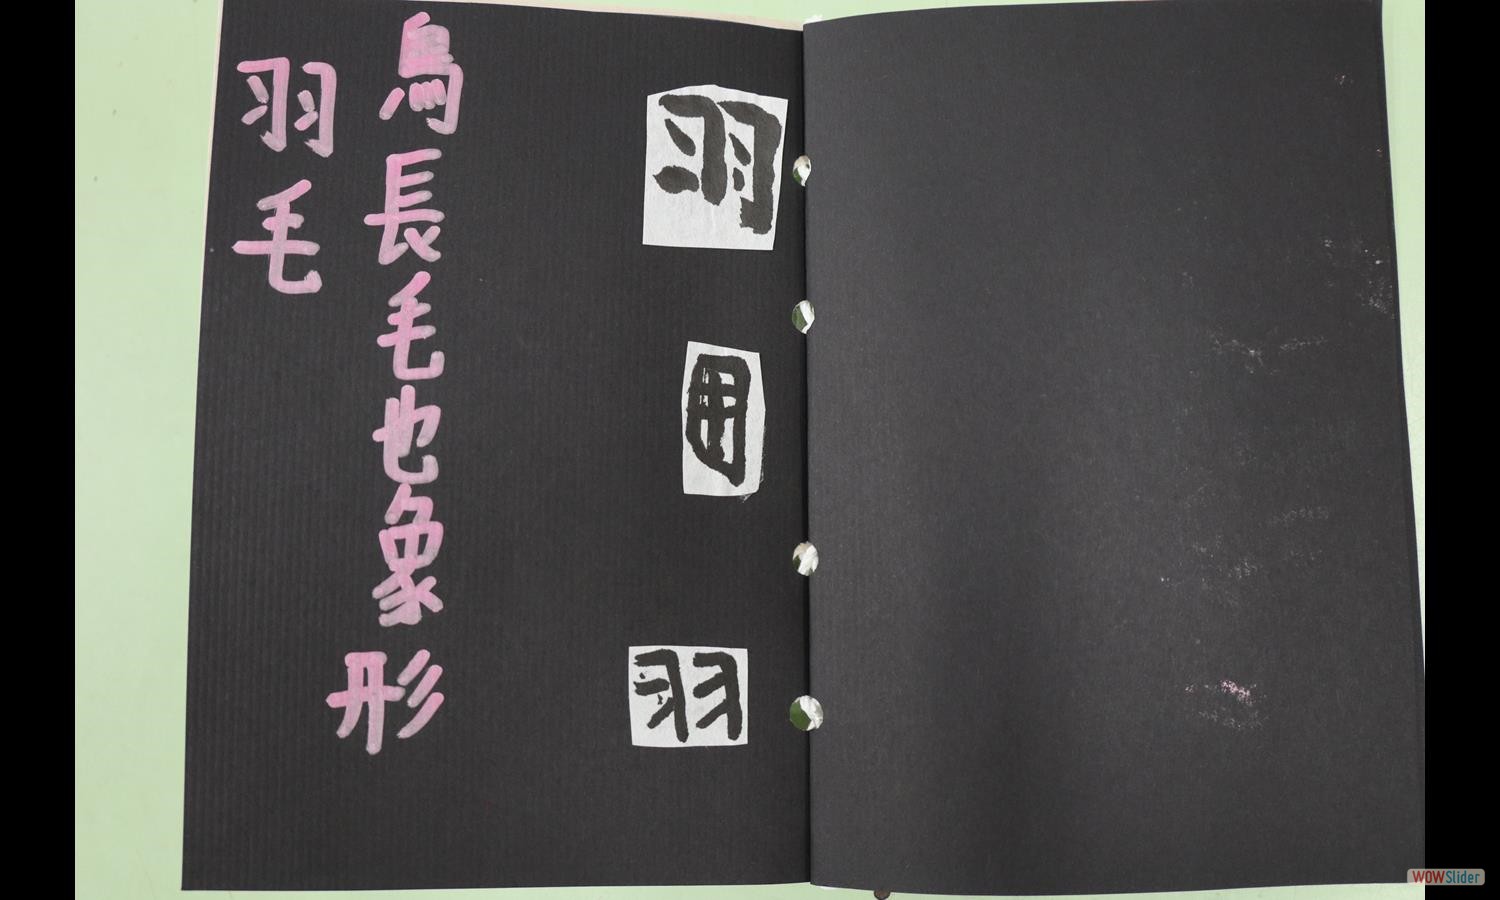 羽
羽
鳥長毛也象形
羽毛
WOWSlider